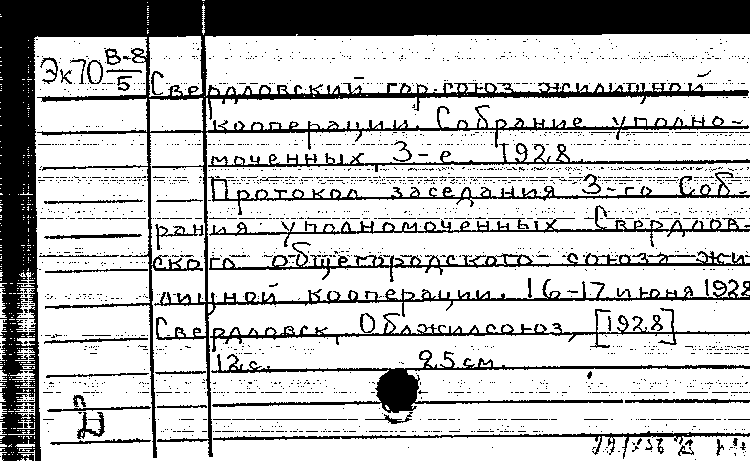 Эк70 В-8/5
Свердловский гор.союз жилищной
кооперации. Собрание уполно-
моченных, 3-е. 1928.
Протокол заседания 3-го Соб-
рания уполномоченных Свердлов-
ского общегородского союза жи
лищной кооперации. 16-17 июня 1928
Свердловск, Облжилсоюз, [1928]
12с. 25 см.